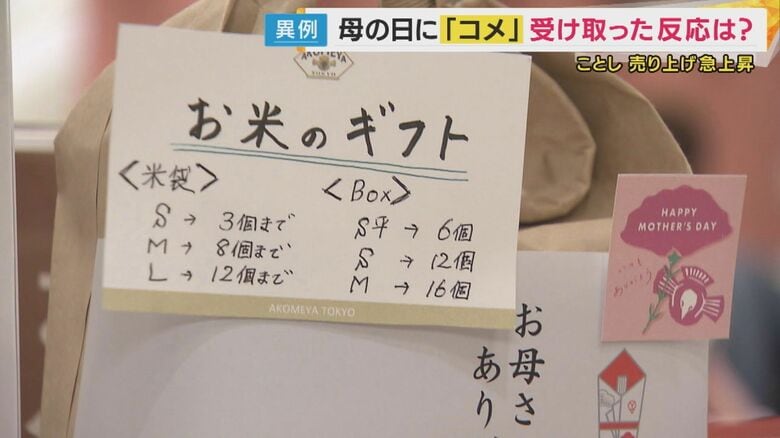 異例 母の日に「コメ」受け取った反応は?
ことし 売り上げ急上昇
AKOMEYA
TOKYO
お米のギフト
<米袋>
S → 3個まで
M → 8個まで
L → 12個まで
<Box>
S平 → 6個
S → 12個
M → 16個
AKOMEYA TOKYO
HAPPY
MOTHER'S DAY
いつも
ありがとう
お母さ
あり